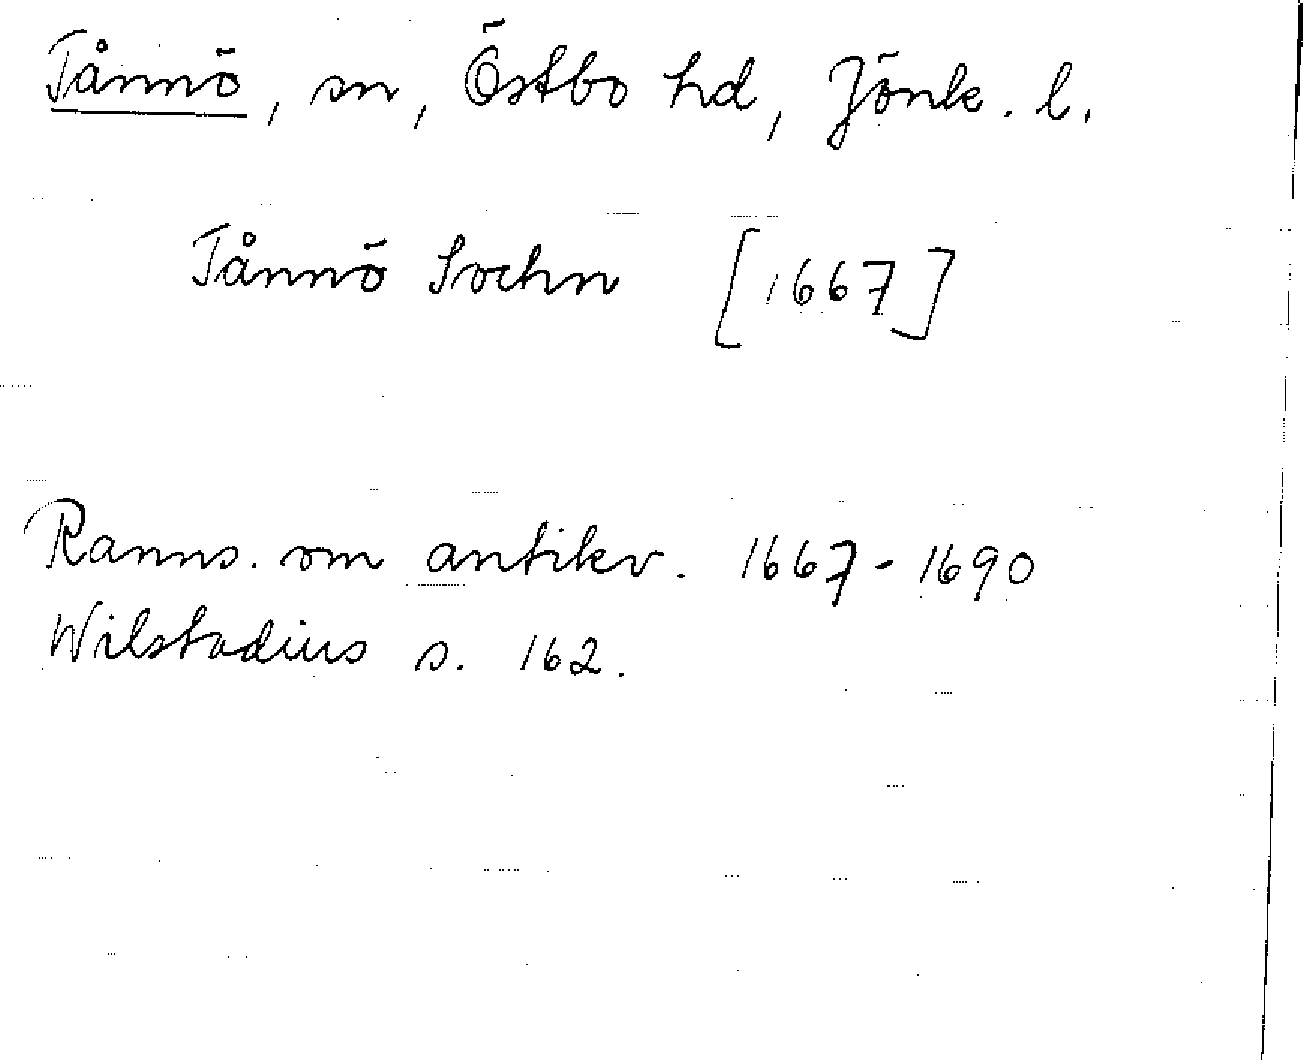 Tånnö, sn, Östbo hd, Jönk. l.
Tånnö Sochn [1667]
Ranns. om antikv. 1667-1690
Wilstadius s. 162.